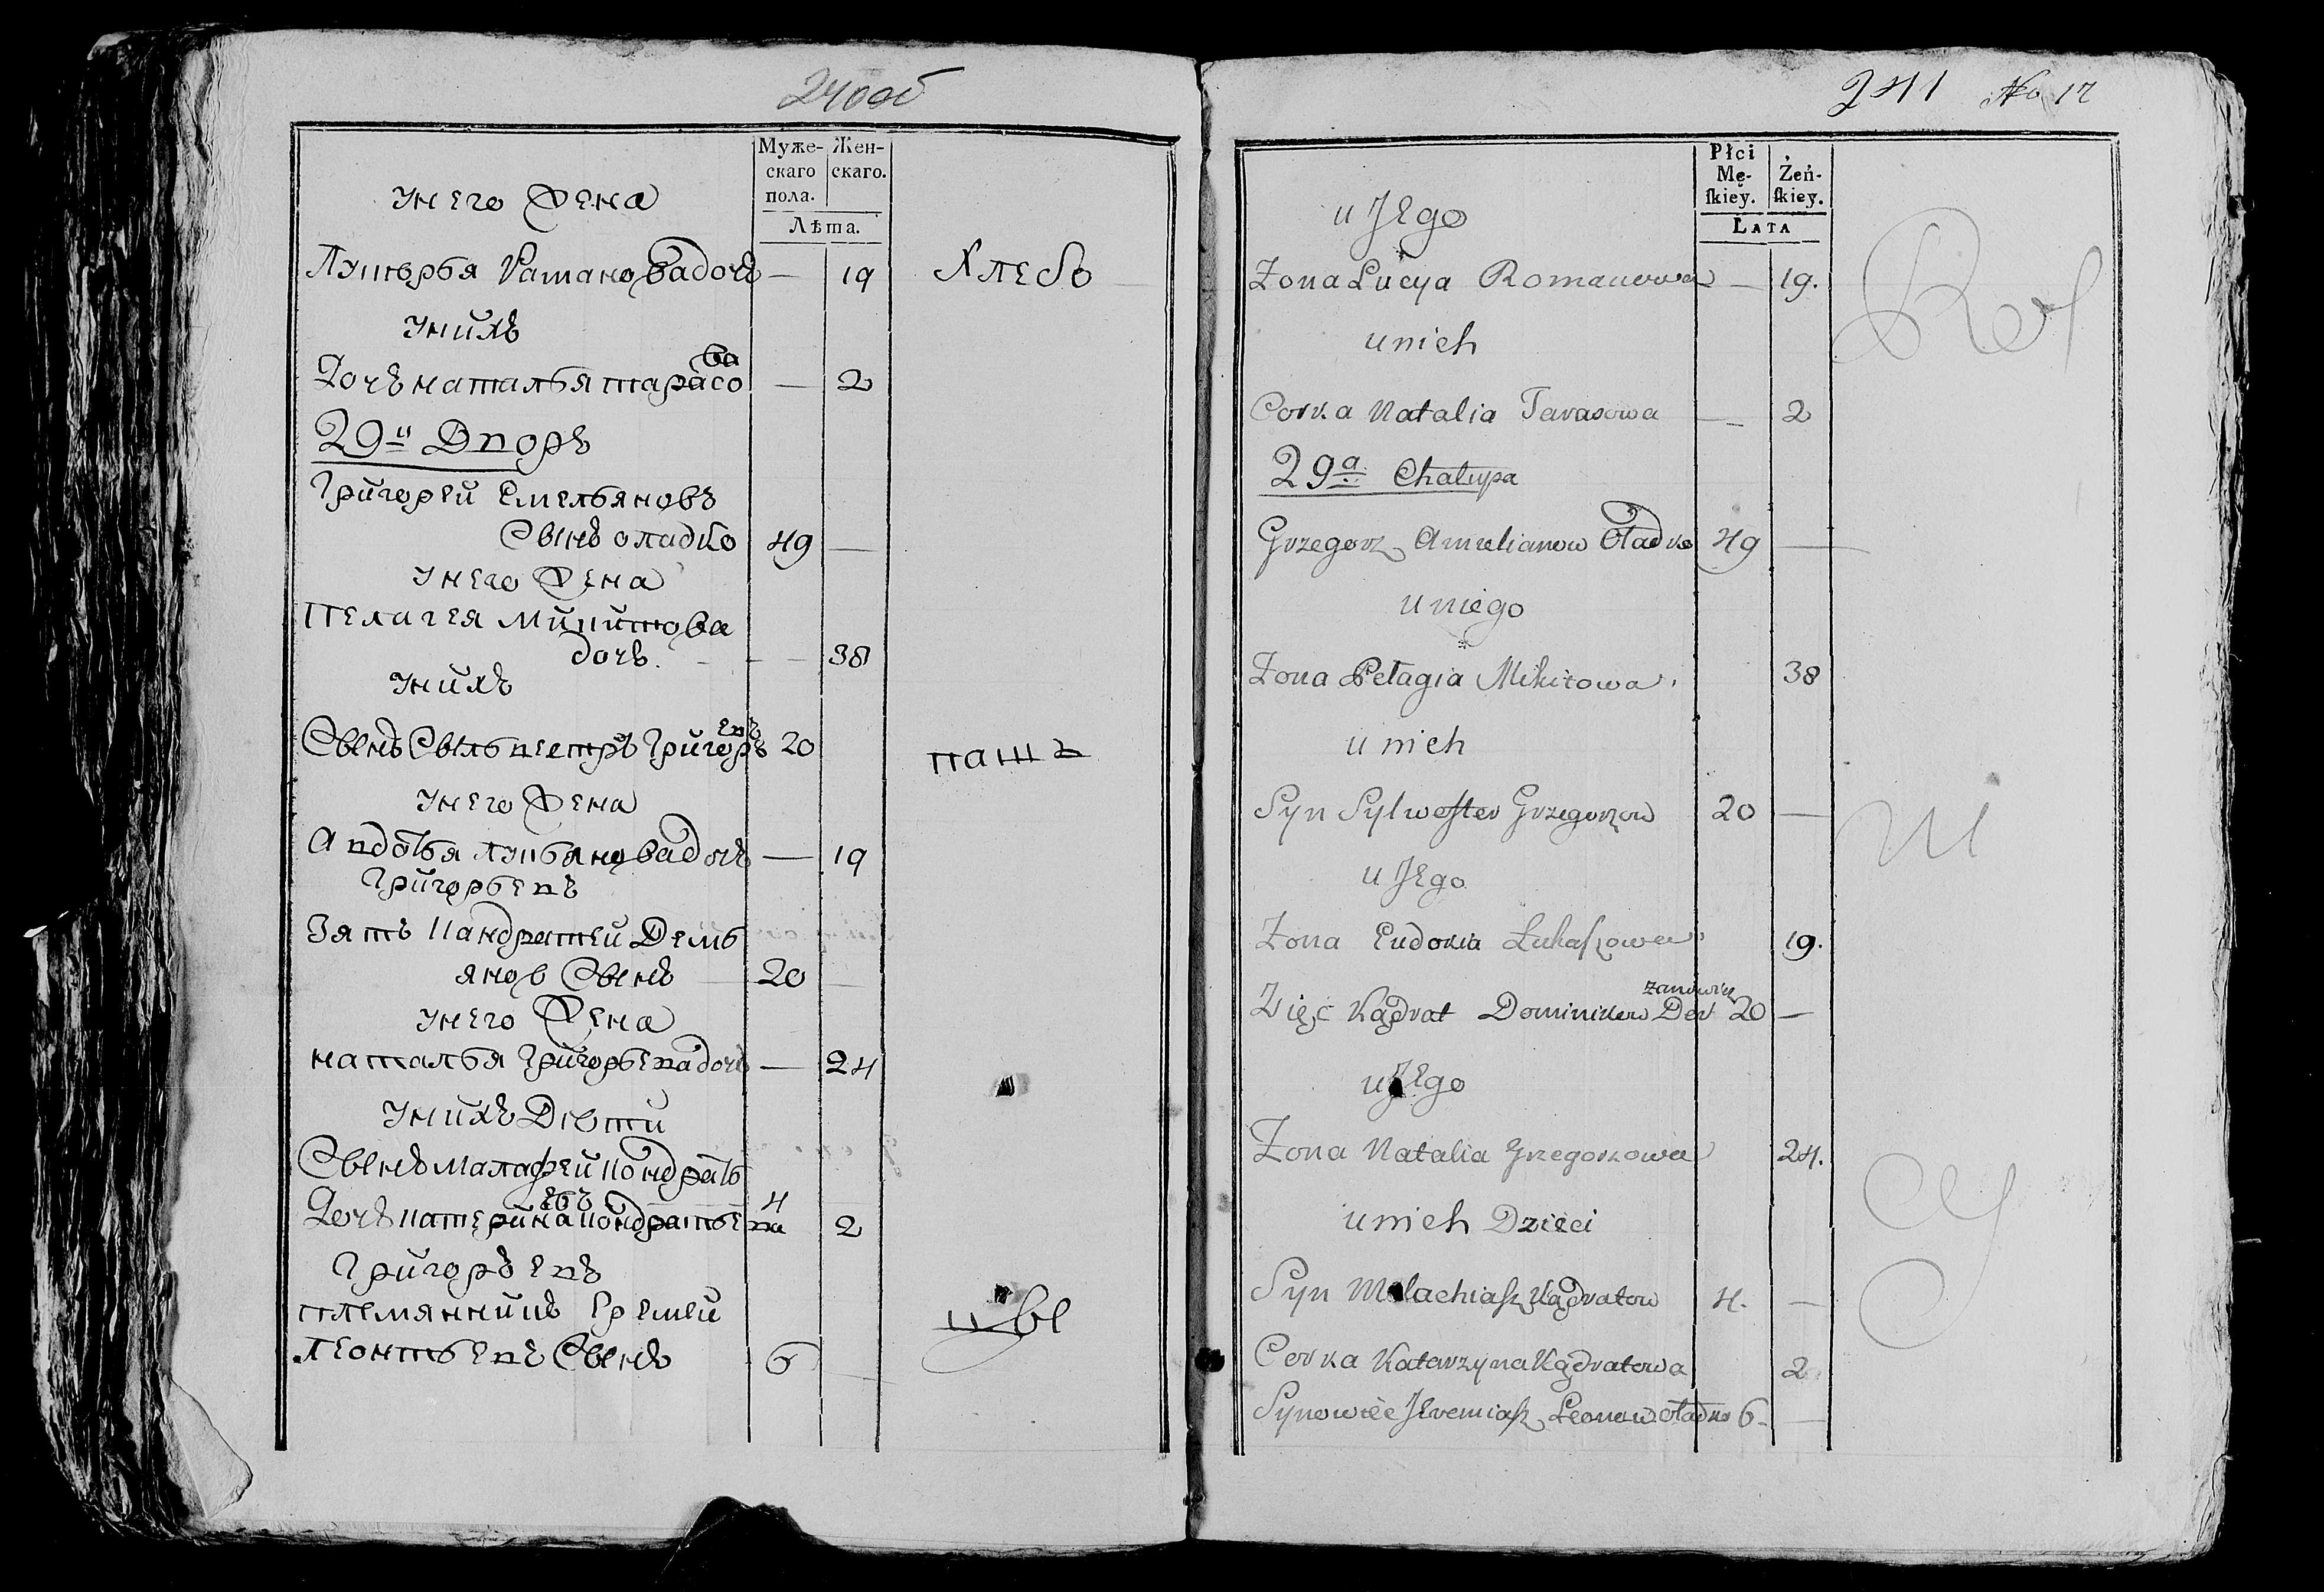 240об
Муже-
скаго
пола.
Жен-
скаго.
Лѣта.
Унего Жена
Лукерья Раманова дочь — 19
Хлебо
Унихъ
Дочь наталья тарасова — 2
29й Дворъ
Григорей Емельяновъ
Сынъ оладко 49 —
Унего Жена
Пелагея Микитова
дочь. — 38
Унихъ
Сынъ Сильвестръ Григорьевъ 20
пашъ
Унего Жена
Авдотья лукьянова дочь — 19
Григорьевъ
Зять Кандратей Демь
янов Сынъ 20 —
Унего Жена
наталья Григорьева дочь — 24
Унихъ Дѣти
Сынъ Малафей Кондрать
евъ 4 —
Дочь катерина кондратьева 2
Григорьевъ
племянникъ Еремей
кы
Леонтьевъ Сынъ 6
241 No 17
Płci
Mę-
ſkiey.
Żeń-
ſkiey.
LATA
u Jego
Żona Łucya Romanowa — 19.
Ref
u nich
Corka Natalia Tarasowa — 2
29a Chałupa
Grzegorz Amelianow Oładko 49 —
u niego
Żona Pełagia Mikitowa 38
u nich
Syn Sylweſter Grzegorzow 20 —
u Jego
Żona Eudokia Łukaſzowa 19.
zanowicz
Zięć Kądrat Dominikow Der 20 —
u Jego
Żona Natalia Grzegorzowa 24.
u nich Dzieci
Syn Malachiaſz Kądratow 4. —
Corka Katarzyna Kądratowa 2
Synowiec Jeremiaſz Leonow oładko 6 —